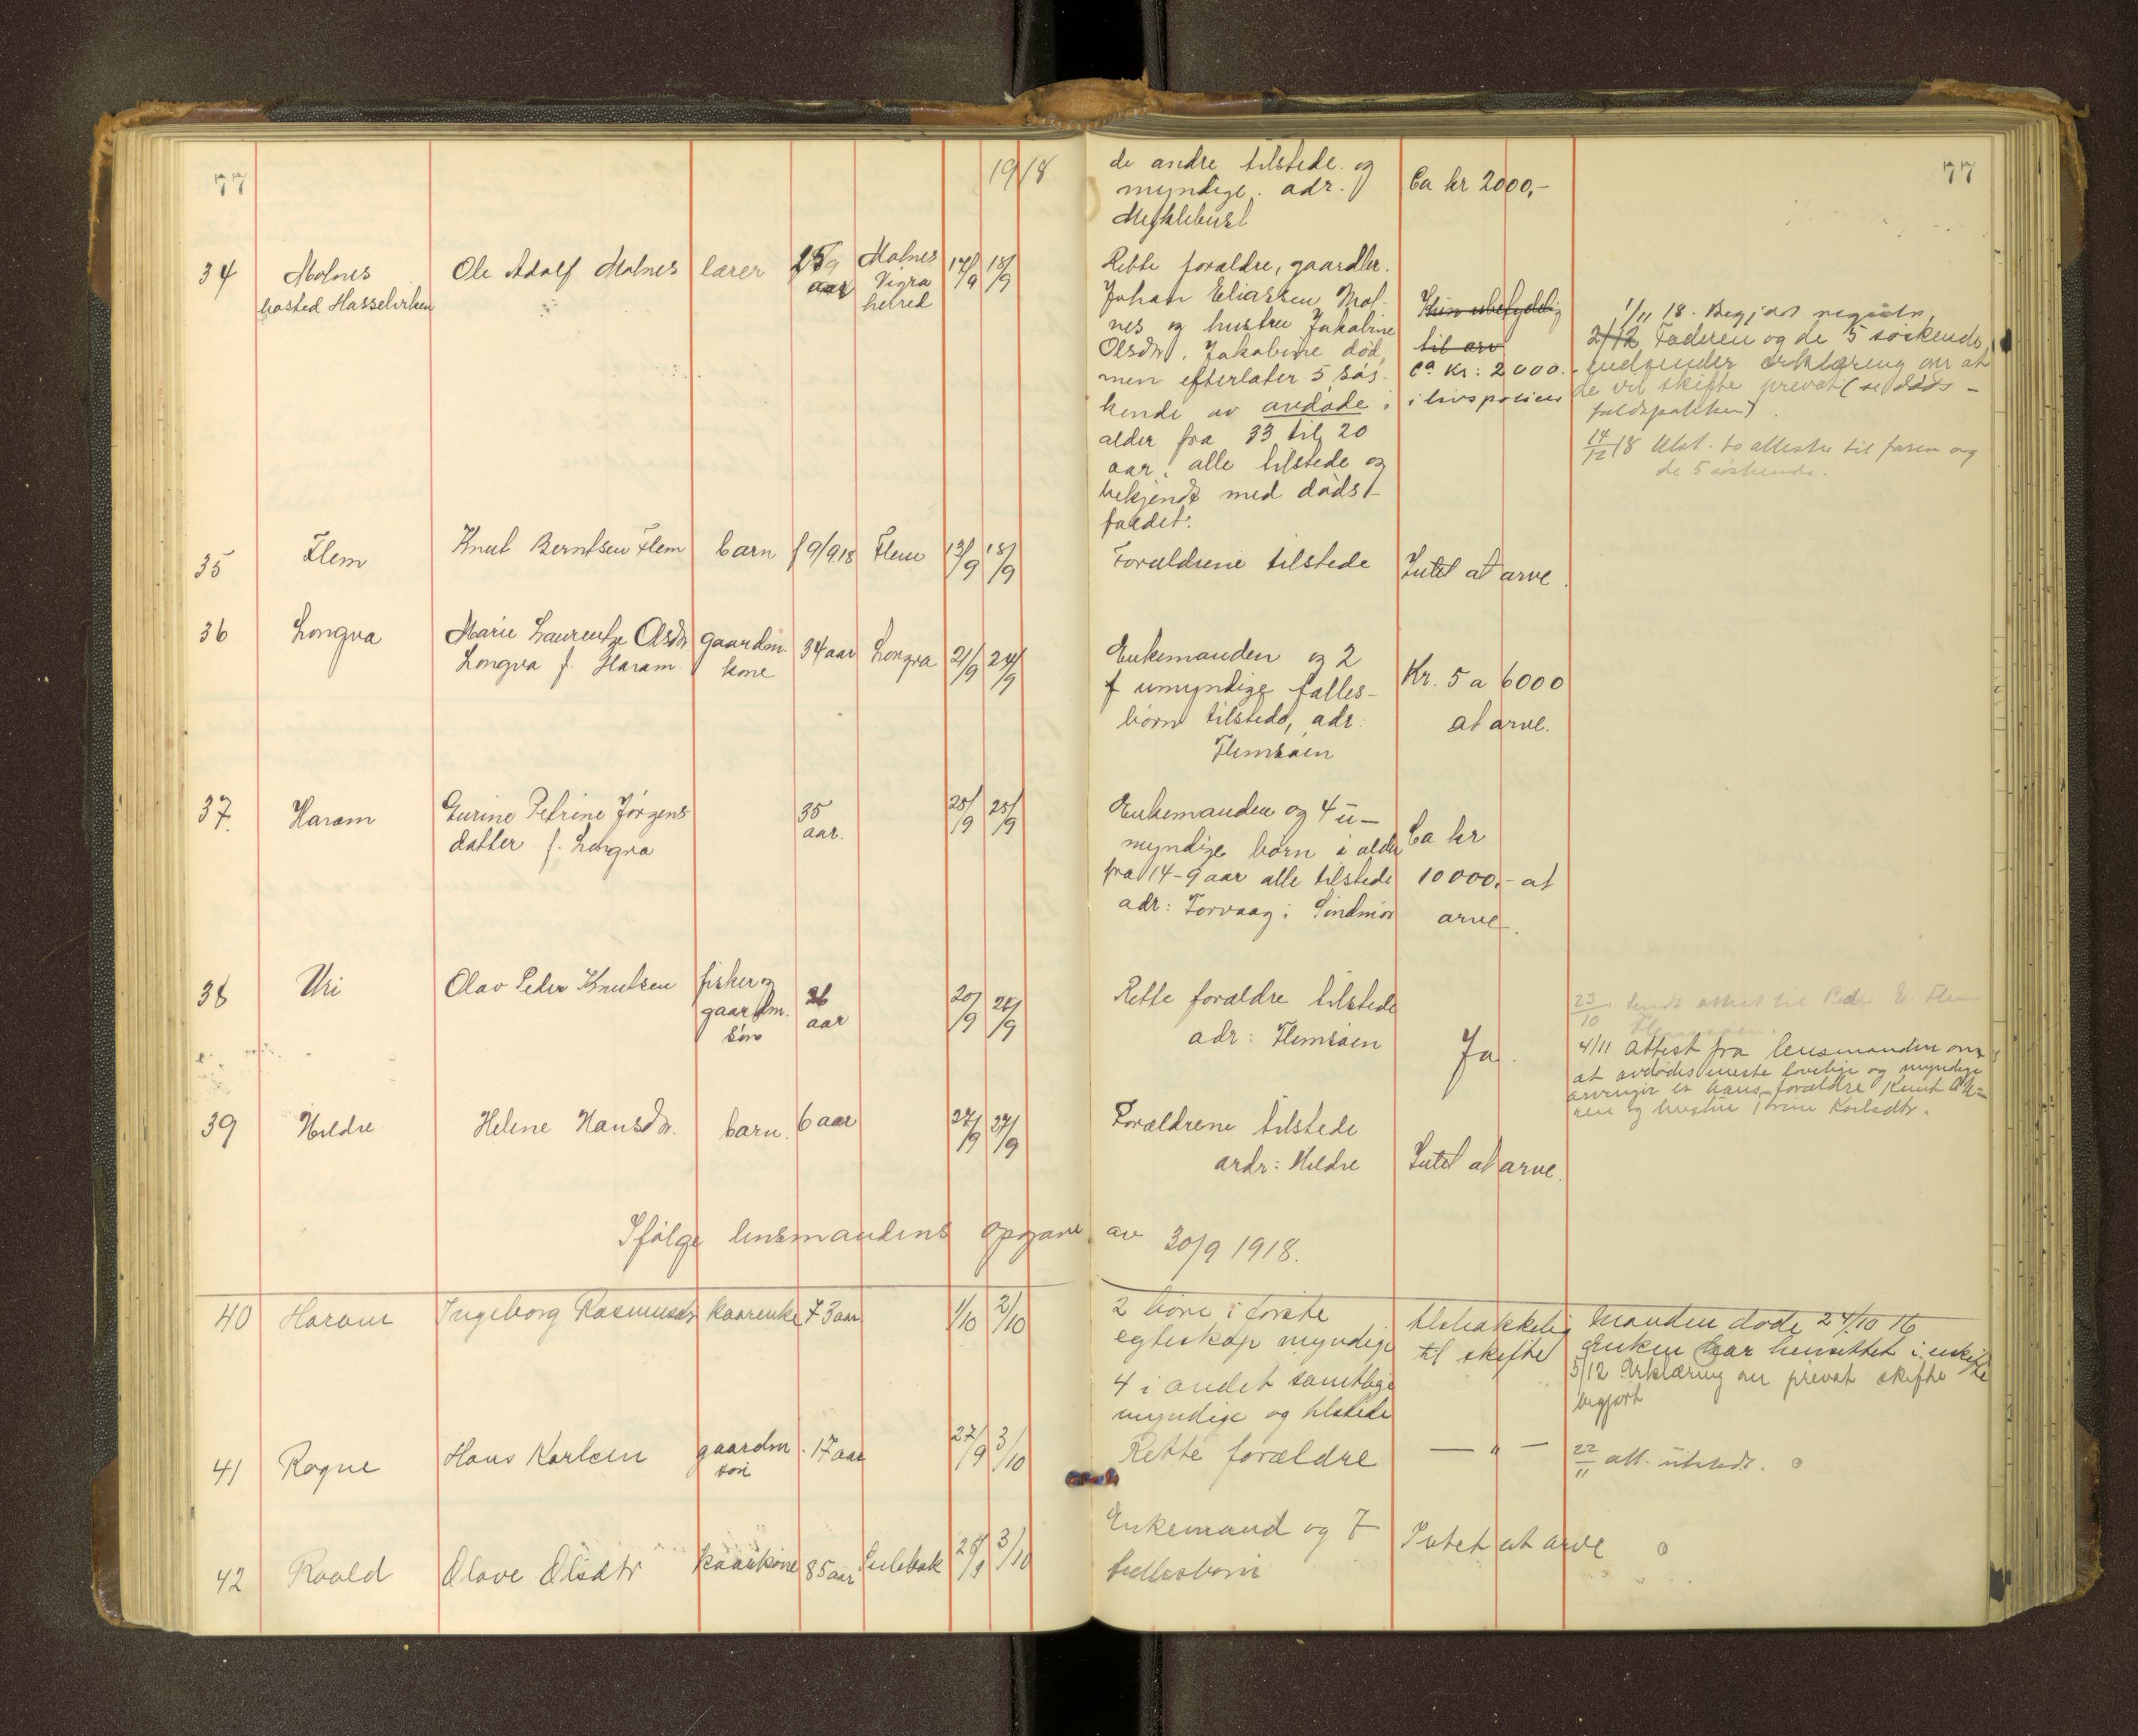 77
1918
34
Molnes
bosted Hasselviken
Ole Adolf Molnes
lærer
aar
Molnes
Vigra
herred
17/9
18/9
35
Flem
Knut Berntsen Flem
barn
f 9/9 18
Flem
13/9
18/9
36
Longva
Marie Laurentze Olsdtr.
Longva f. Haram
gaardm.
kone
34 aar
Longva
21/9
24/9
37.
Haram
Gurine Petrine Jörgens
datter f. Longva
35
aar.
25/9
25/9
38
Uri
Olav Peder Knutsen
fisker og
gaardm.
sön
26
aar
20/9
26/9
39
Hildre
Helene Hansdtr.
barn.
6 aar
27/9
27/9
Ifölge lensmandens opgave av 30/9 1918.
40
Haram
Ingeborg Rasmusdtr
kaarenke
73 aar
1/10
2/10
41
Rogne
Hans Karlsen
gaardm.
sön
17 aar
27/9
3/10
42
Roald
Olave Olsdtr
kaarkone
85 aar
Sulebak
3/10
77
de andre tilstede og
myndige. adr.
Myklebust
Ca kr 2000,-
Rette forældre, gaardbr.
Johan Eliassen Mol-
nes og hustru Jakobine
Olsdtr. Jakobine död,
men efterlater 5 sös-
kende av avdöde i
alder fra 33 til 20
aar, alle tilstede og
bekjendt med döds-
faldet.
Kun ubetydelig
til arv
ca kr: 2000.-
i livspolicer
1/11 18. Begj. dot
2/12 Faderen og de 5 söskende
indsender erklæring om at
de vil skifte privat (se döds-
faldspakken)
14/12 18 Utst. to attester til faren og
de 5 söskende.
Forældrene tilstede
Intet at arve.
Enkemanden og 2
umyndige fælles-
börn tilstede, adr:
Flemsöen
Kr. 5 a 6000
at arve.
Enkemanden og 4 u-
myndige börn i alder
fra 14-9 aar alle tilstede
adr: Torvaag i Söndmör
Ca kr
10000,- at
arve.
Rette forældre tilstede
adr: Flemsöen
Ja.
23/10 Sendt attest til Peder E. Flem
Flemsöen.
4/11 Attest fra lensmanden om
at avdödes næste lovlige og myndige
arvinger er hans forældre Knut
og hustru Karlsdtr.
Forældrene tilstede
ardr: Hildre
Intet at arve.
2 börn i förste
egteskap myndige
4 i andet samtlige
myndige og tilstede
tilstrækkelig
til skifte
Manden döde 24/10 16
Enken har hensittet i uskifte
5/12 Erklæring om privat skifte
begjært
Rette forældre
— " —
22/11 att. utstedt.
Enkemand og 7
fællesbörn
Intet at arve